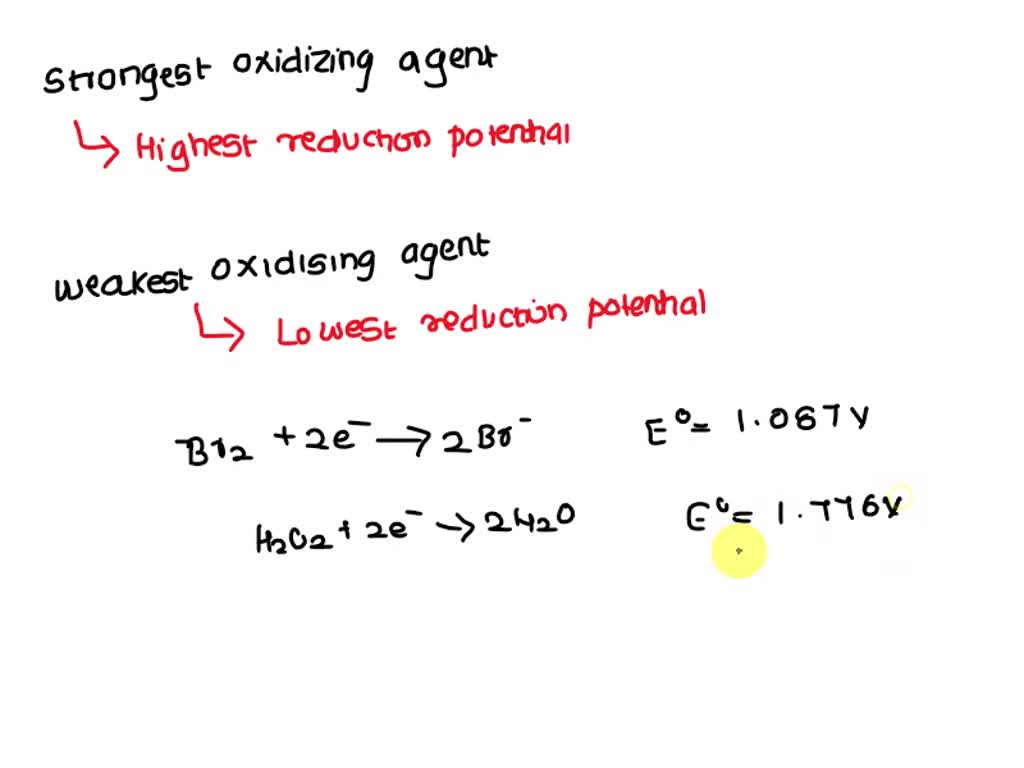 Strongest oxidizing agent
↳ Highest reduction potential
Weakest oxidising agent
↳ Lowest reduction potential
Br₂ + 2e⁻ → 2Br⁻ E⁰= 1.087V
H₂O₂ + 2e⁻ → 2H₂O E⁰= 1.776V